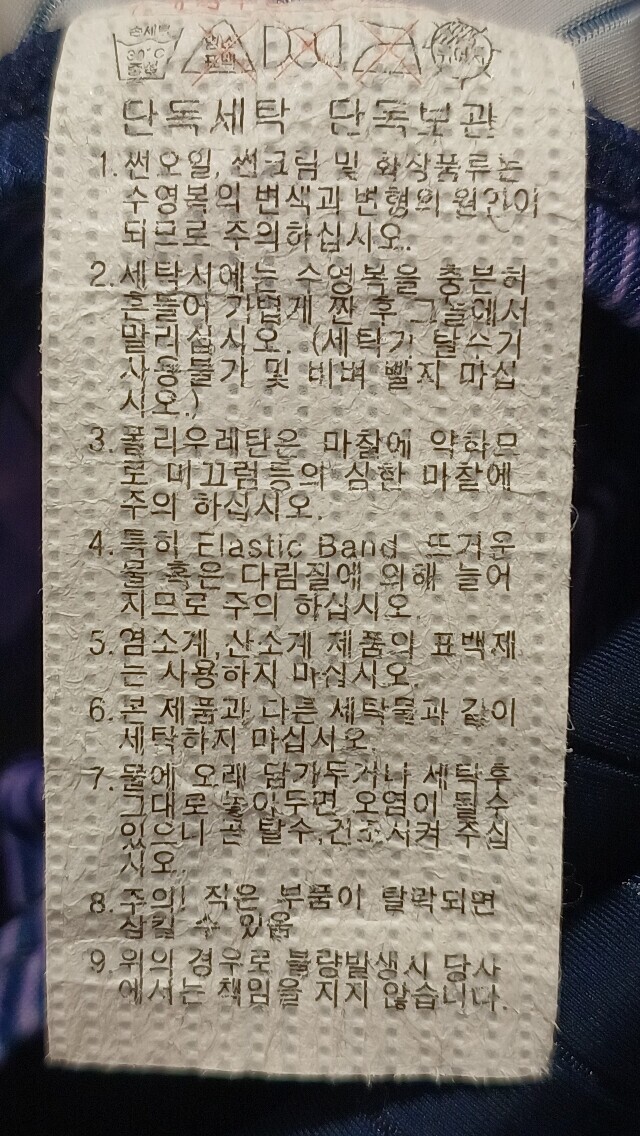 손세탁
30°C
중성
염소
표백
단독세탁 단독보관
1. 썬오일, 썬크림 및 화장품류는
수영복의 변색과 변형의 원인이
되므로 주의하십시오.
2. 세탁시에는 수영복을 충분히
흔들어 가볍게 짠 후 그늘에서
말리십시오. (세탁기 탈수기
사용불가 및 비벼 빨지 마십
시오.)
3. 폴리우레탄은 마찰에 약하므
로 미끄럼등의 심한 마찰에
주의 하십시오.
4. 특히 Elastic Band 뜨거운
물 혹은 다림질에 의해 늘어
지므로 주의 하십시오.
5. 염소계,산소계 제품의 표백제
는 사용하지 마십시오.
6. 본 제품과 다른 세탁물과 같이
세탁하지 마십시오.
7. 물에 오래 담가두거나 세탁후
그대로 놓아두면 오염이 될수
있으니 곧 탈수,건조시켜 주십
시오.
8. 주의! 작은 부품이 탈락되면
삼킬 수 있음
9. 위의 경우로 불량발생시 당사
에서는 책임을 지지 않습니다.